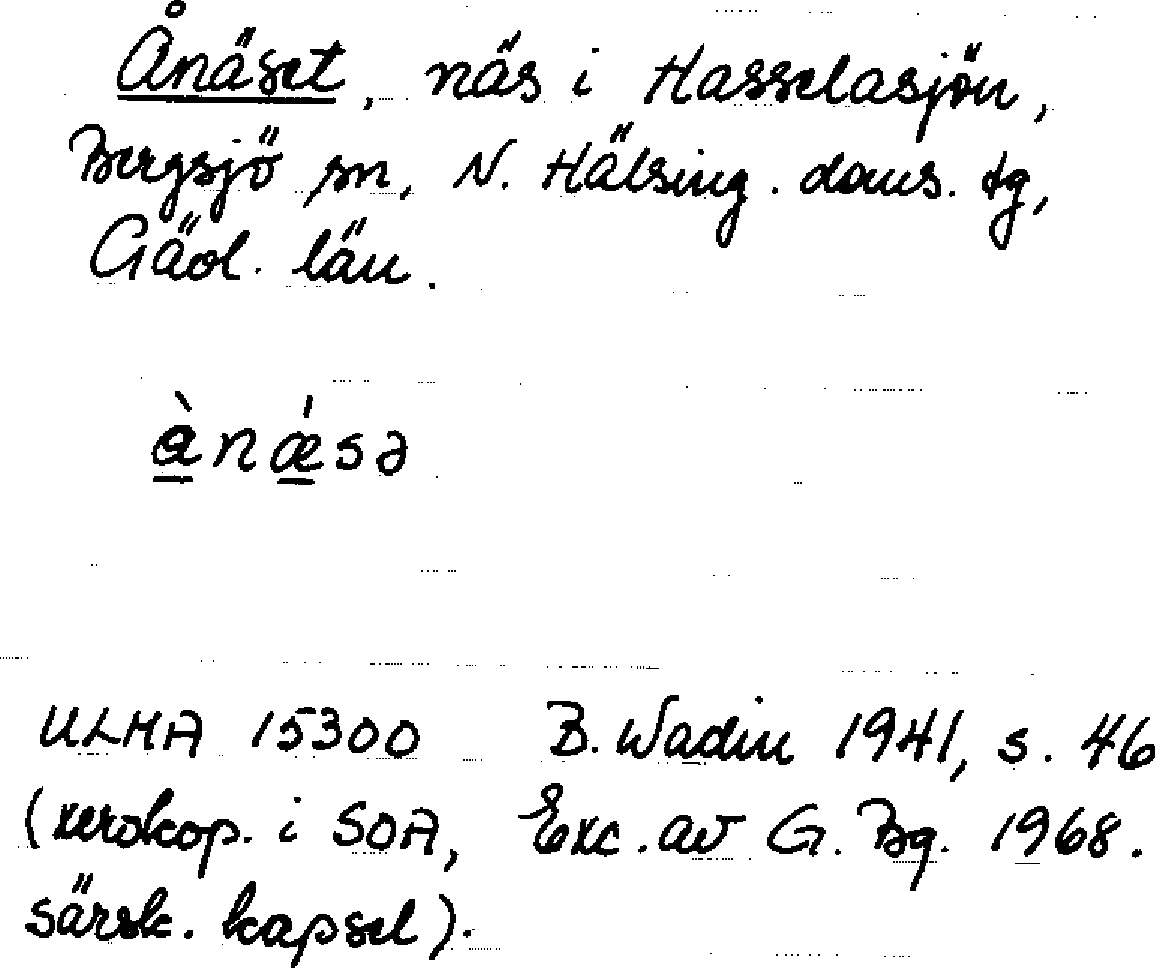 Ånäset, näs i Hasselasjön,
Bergsjö sn, N. Hälsing. doms. tg,
Gävl. län.
ànǽsə
ULMA 15300 B. Wadin 1941, s. 46
(xerokop. i SOA, Exc. av G. Bg. 1968.
särsk. kapsel).